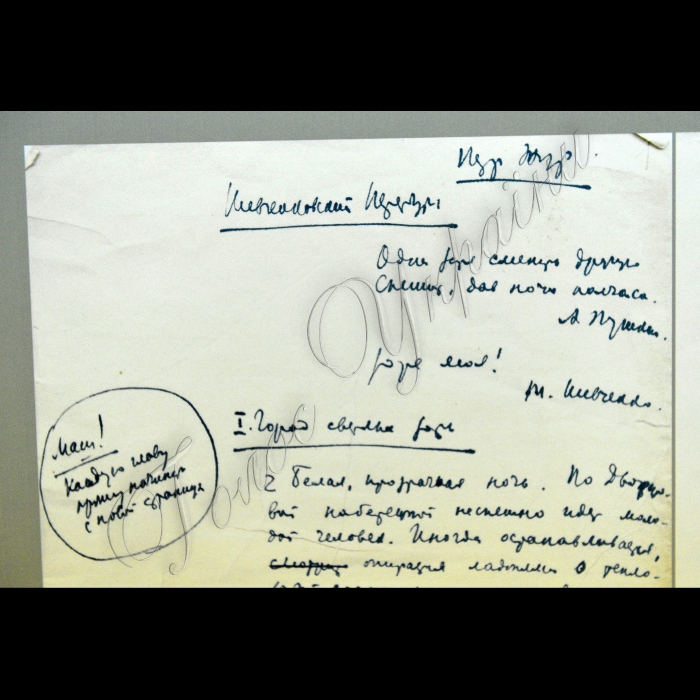 Петр Жур.
Шевченковский Петербург
Одна заря сменить другую
Спешит, дав ночи полчаса.
А. Пушкин.
Зоре моя!
Т. Шевченко.
I. Город светлых зорь
Маш!
Каждую главу
прошу начинать
с новой страницы
Белая, прозрачная ночь. По Дворцо-
вой набережной неспешно идет моло-
дой человек. Иногда останавливается,
смотрит опираясь ладонями о тепло-
Голос України